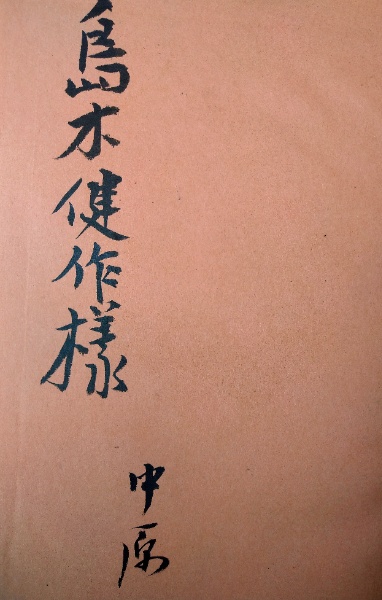 島木健作様
中原